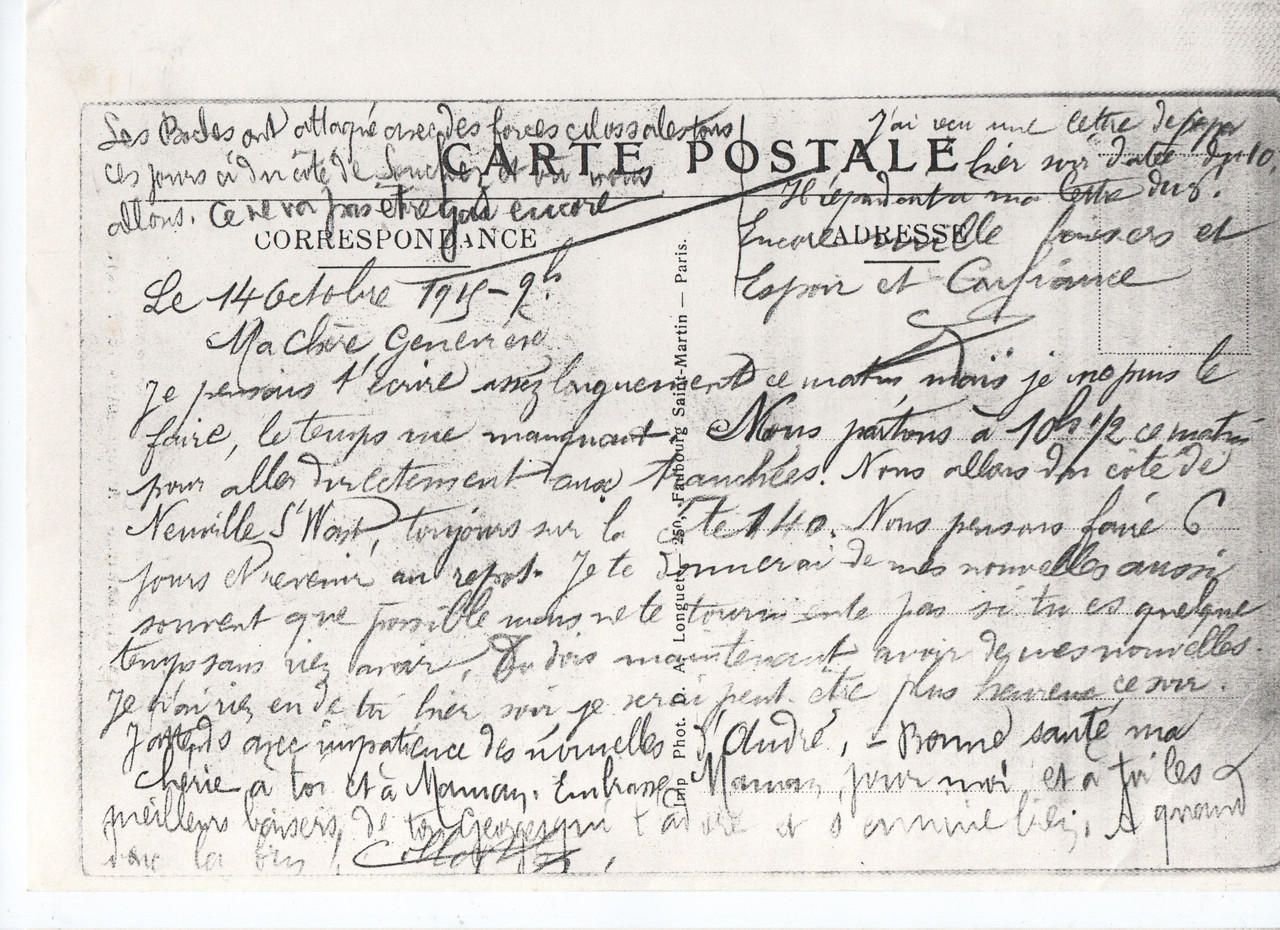 Les Boches ont attaqué avec des forces colossales tous
ces jours ci du côté de Souchez et où nous
allons. Ce ne va pas être gai encore
J'ai reçu une lettre de papa
hier soir datée du 10.
Il répondait à ma lettre du 8.
Encore mille baisers et
Espoir et Confiance
CARTE POSTALE
CORRESPONDANCE
ADRESSE
Le 14 Octobre 1915 - 9h
Ma chère Geneviève
Je pensais t'écrire assez longuement ce matin mais je ne puis le
faire, le temps me manquant. Nous partons à 10hs 1/2 ce matin
pour aller directement aux tranchées. Nous allons du côté de
Neuville St Waast, toujours sur la côte 140. Nous pensons faire 6
jours et revenir au repos. Je te donnerai de mes nouvelles aussi
souvent que possible mais ne te tourmente pas si tu es quelque
temps sans rien avoir. Tu dois maintenant avoir de mes nouvelles.
Je n'ai rien eu de toi hier soir je serai peut être plus heureux ce soir.
J'attends avec impatience des nouvelles d'André, - Bonne santé ma
chérie à toi et à Maman. Embrasse Maman pour moi et à toi les
meilleurs baisers de ton Georges qui t'adore et s'ennuie bien. A quand
la fin !
Imp Phot. D. A. Longuet — 250, Faubourg Saint-Martin — Paris.